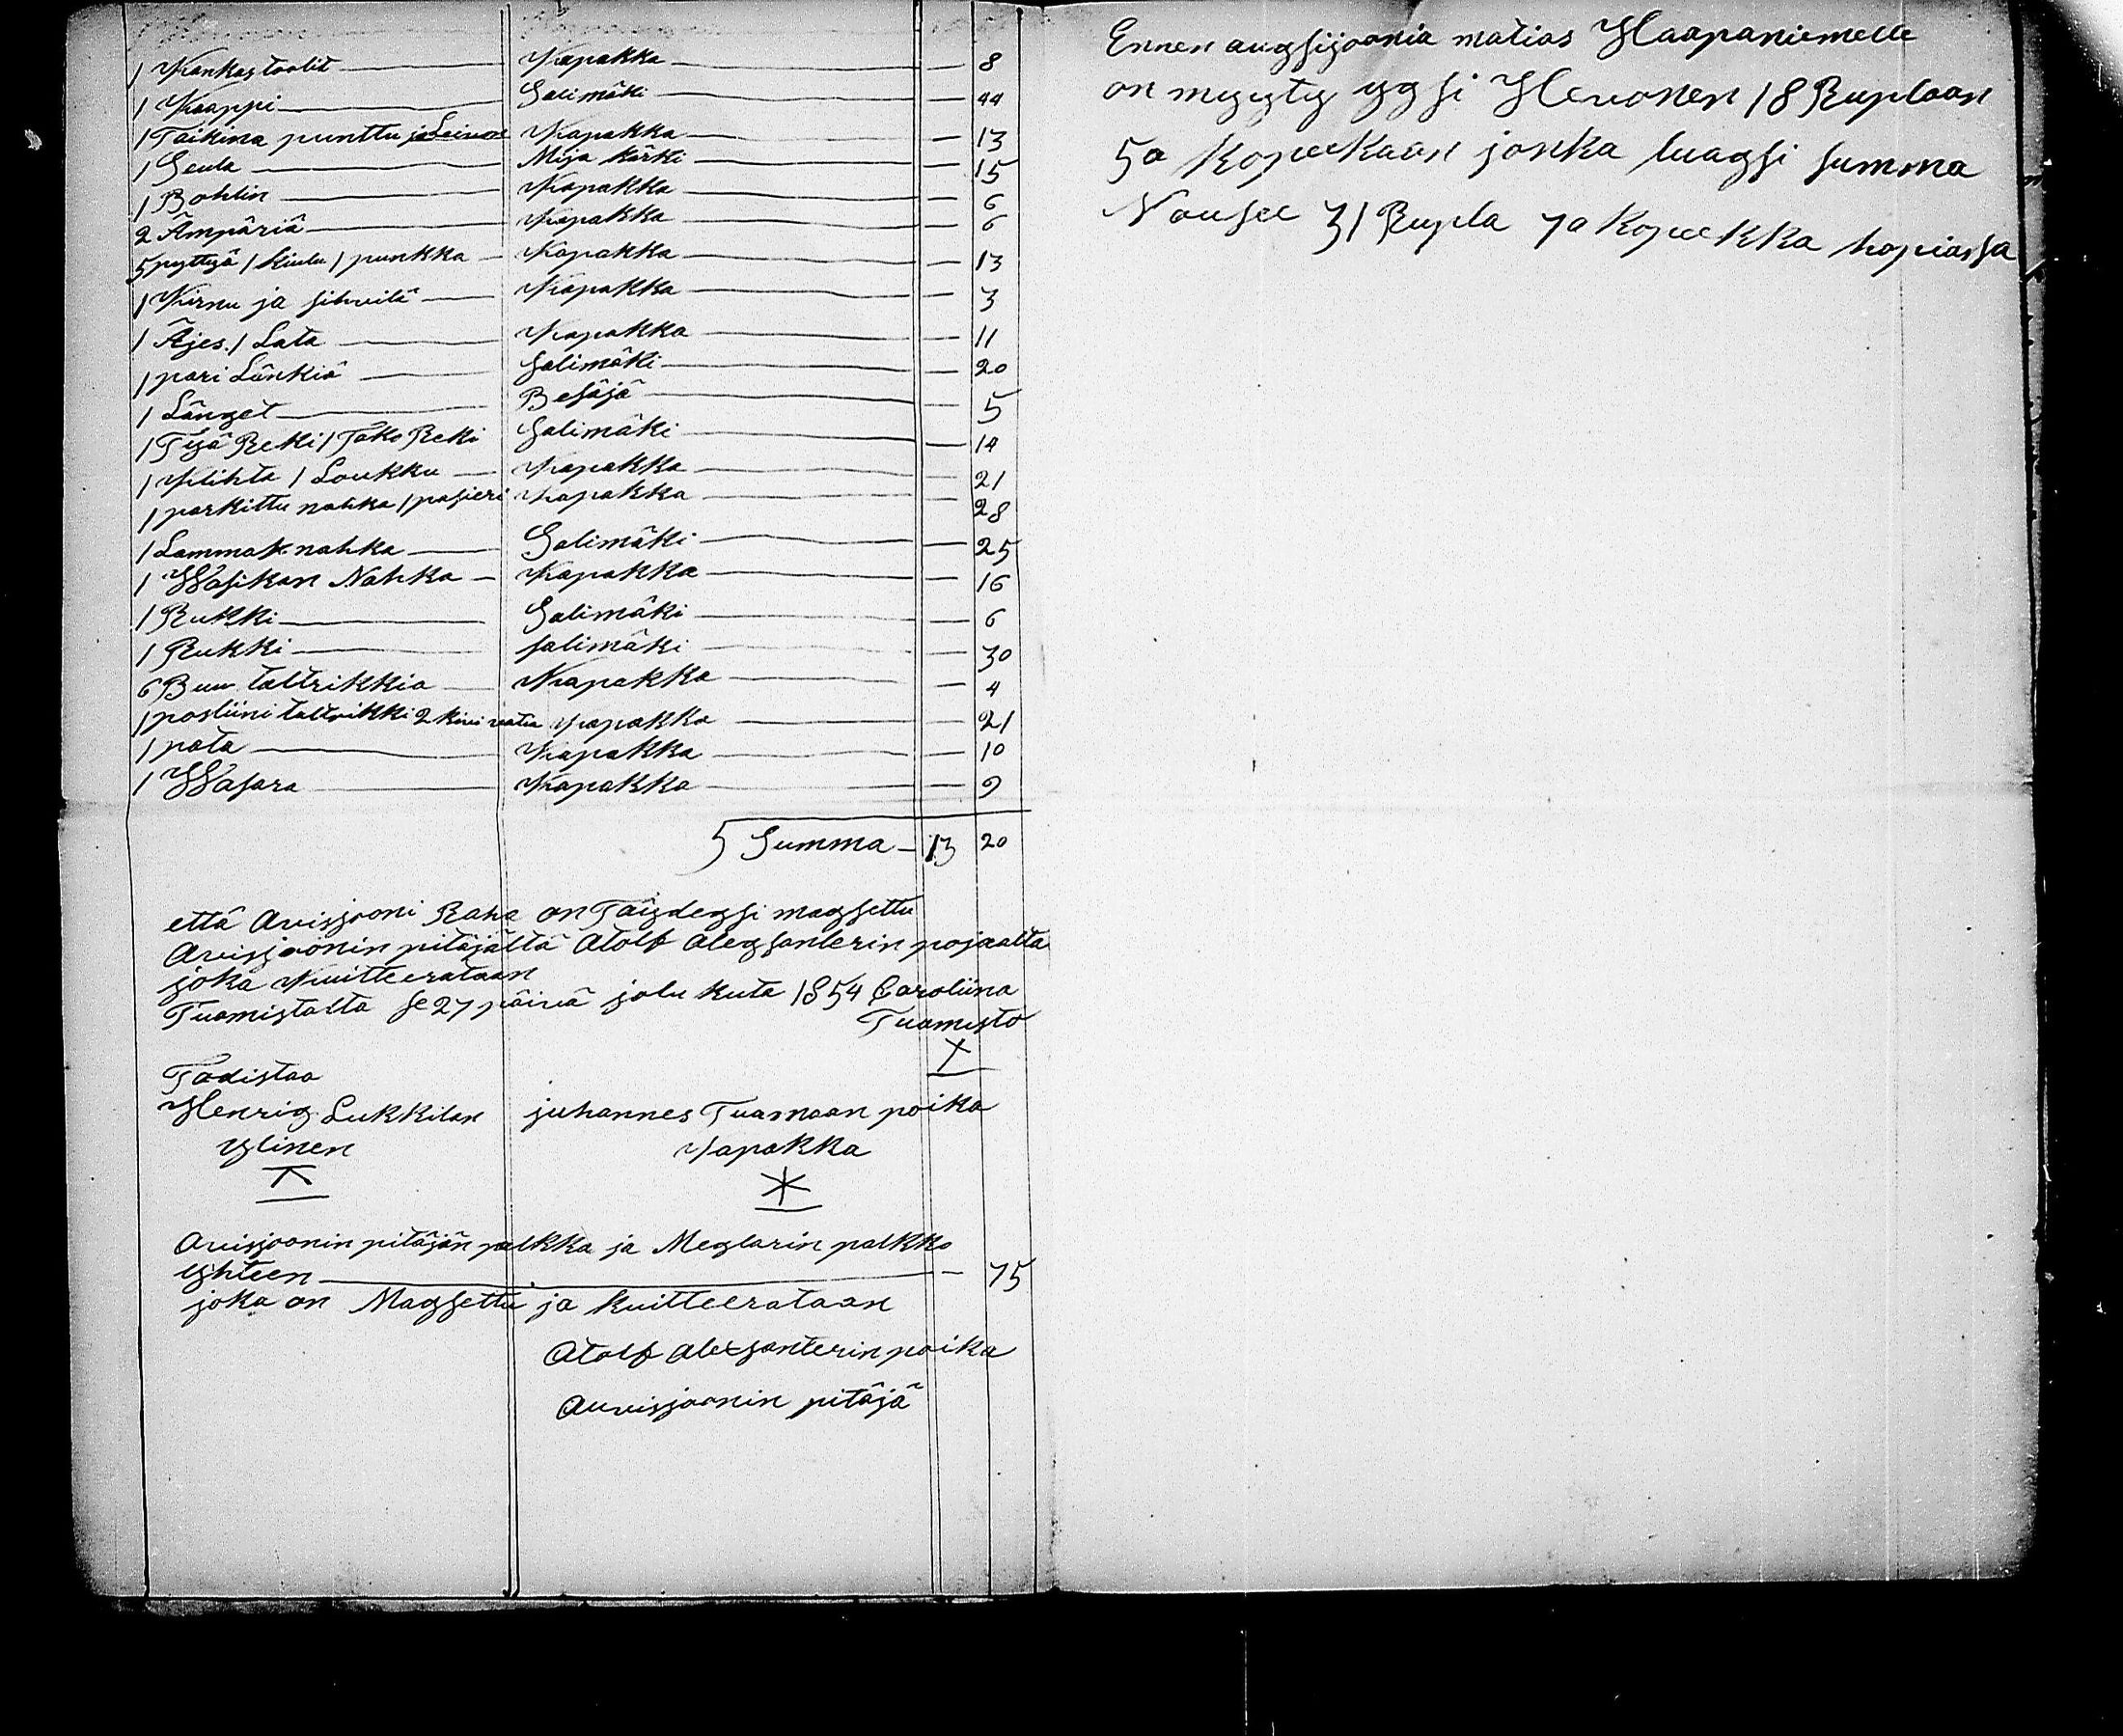 1 Kankastoolit — Kapakka — 8
1 Kaappi — Salimäki — 44
1 Taikina punttu ja — Kapakka — 13
1 Seula — Mija Kärki — 15
1 Bohlin — Kapakka — 6
2 Ämpäriä — Kapakka — 6
5 pyttyä 1 kiulu 1 punkka — Kapakka — 13
1 Kirnu ja sihvilä — Kapakka — 3
1 Äjes. 1 Lata — Kapakka — 11
1 pari Länkiä — Salimäki — 20
1 Länget — Besäjä — 5
1 Työ Reki 1 Tako Reki — Salimäki — 14
1 Klihta 1 Loukku — Kapakka — 21
1 parkittu nahka 1 pasieri — Kapakka — 28
1 Lammak nahka — Salimäki — 25
1 Wasikan Nahka — Kapakka — 16
1 Rukki — Salimäki — 6
1 Rukki — salimäki — 30
6 Buu taltrikkia — Kapakka — 4
1 posliini taltrikki 2 kivi vatia Kapakka — 21
1 pata — Kapakka — 10
1 Wasara — Kapakka — 9
Summa — 13 20
että Auisjooni Raha on Täydegsi magsettu
Auisjoonin pitäjältä Atolf Alegsanterin pojaalta
joka Kuitteerataan
Tuomistolta se 27 päivä jolu kuta 1854 Caroliina
Tuomisto
Todistaa
Henrig Lukkilan juhannes Tuamaan poika
Ylinen Kapakka
Auisjoonin pitäjän palkka ja Meglarin palkka
Yhteen — 75
joka on Magsettu ja kuitteerataan
Atolf Alexsanterin poika
Auvisjoonin pitäjä
Ennen augsijoonia matias Haapaniemelle
on myyty ygsi Hevonen 18 Ruplaan
50 Kopeekaan jonka luagsi summa
Nousee 31 Rupla 70 Kopeekka hopiassa